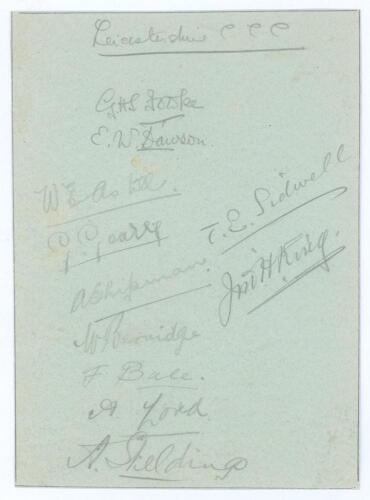 Leicestershire C C C
G H S Fowke
E. W. Dawson.
W E Astill.
G. Geary
T. E. Sidwell
A Shipman.
Jno H. King.
W Berridge
F Bale.
A Lord
A. Skelding